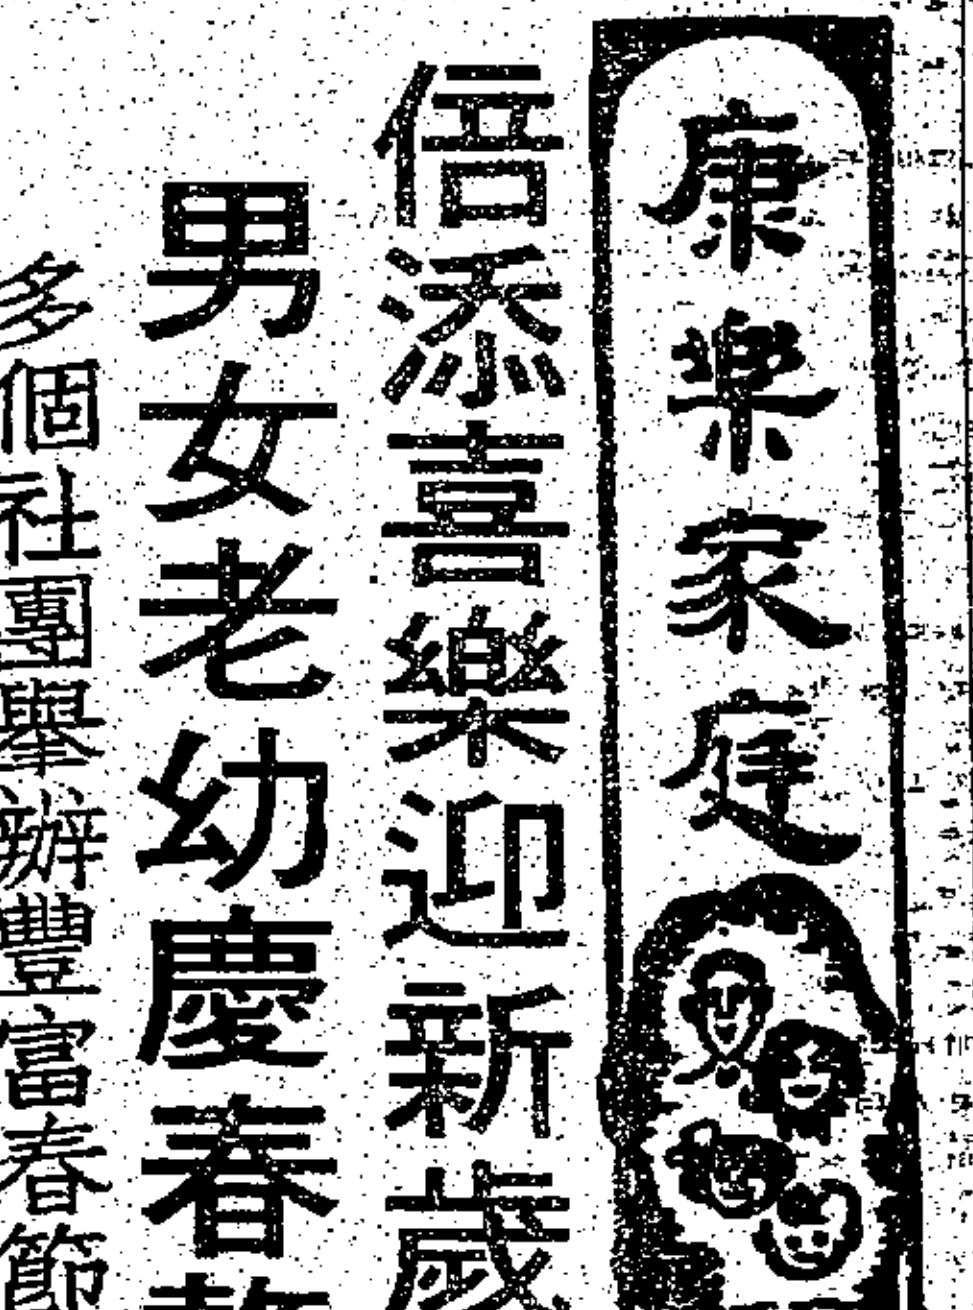 康樂家庭
倍添喜樂迎新歲
男女老幼慶春
多個社團舉辦豐富春節